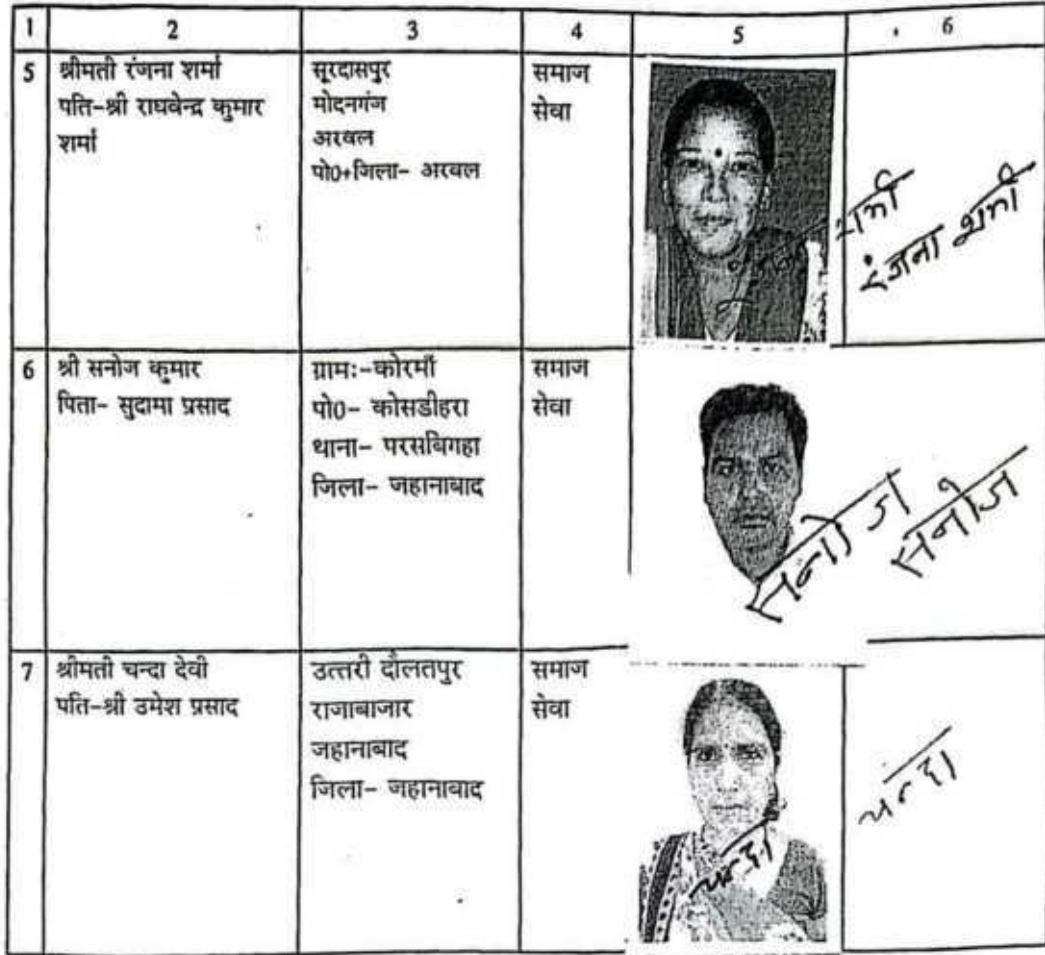 1 2 3 4 5 6
5 श्रीमती रंजना शर्मा
पति-श्री राघवेन्द्र कुमार
शर्मा
सूरदासपुर
मोदनगंज
अरवल
पो0+जिला- अरवल
समाज
सेवा
शर्मा
रंजना शर्मा
6 श्री सनोज कुमार
पिता- सुदामा प्रसाद
ग्रामः-कोरमाँ
पो0- कोसडीहरा
थाना- परसबिगहा
जिला- जहानाबाद
समाज
सेवा
सनोज
सनोज
7 श्रीमती चन्दा देवी
पति-श्री उमेश प्रसाद
उत्तरी दौलतपुर
राजाबाजार
जहानाबाद
जिला- जहानाबाद
समाज
सेवा
चन्दा
चन्दा